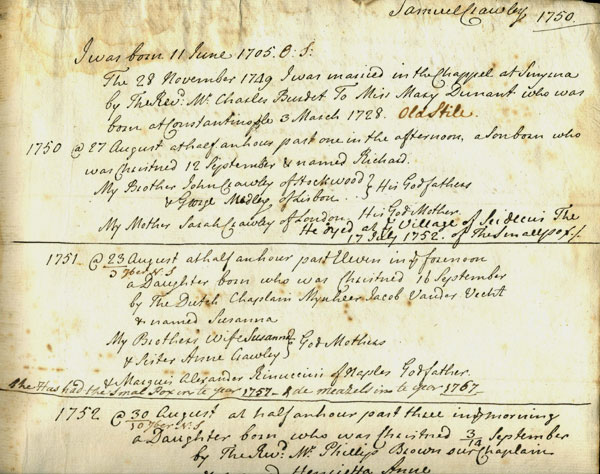 Samuel Crawley 1750.
I was born 11 June 1705. O: S:
The 28 November 1749 I was married in the Chappel at Smyrna
by The Revd. Mr. Charles Burdet To Miss Mary Dunant who was
born at Constantinople 3 March 1728. Old Stile.
1750 @ 27 August at half an hour past one in the afternoon, a Son born who
was Christned 12 September & named Richard.
My Brother John Crawley of Hockwood } His Godfathers
& George Medley, of Lisbon.
My Mother Sarah Crawley of London, His God Mother.
He dyed at ye Village of Seidecui The
17 July 1752. of The Small pox /.
1751 @ 23 August at half an hour past Eleven in ye forenoon
3 7ber N: S
a Daughter born who was Christned 16 September
by The Dutch Chaplain Mynheer Jacob Vander Vecht
& named Susanna
My Brothers Wife Susanna } God Mothers
& Sister Anne Crawley
& Marquis Alexander Rinuccini of Naples Godfather.
She Has had the Small Pox in te year 1757 - & de meazels in te year 1767-
1752 @ 30 August at half an hour past three in ye morning
10 7ber N: S
a Daughter born who was Christned 3/14 September
by The Revd. Mr. Phillip Brown our Chaplain
Henrietta Anne